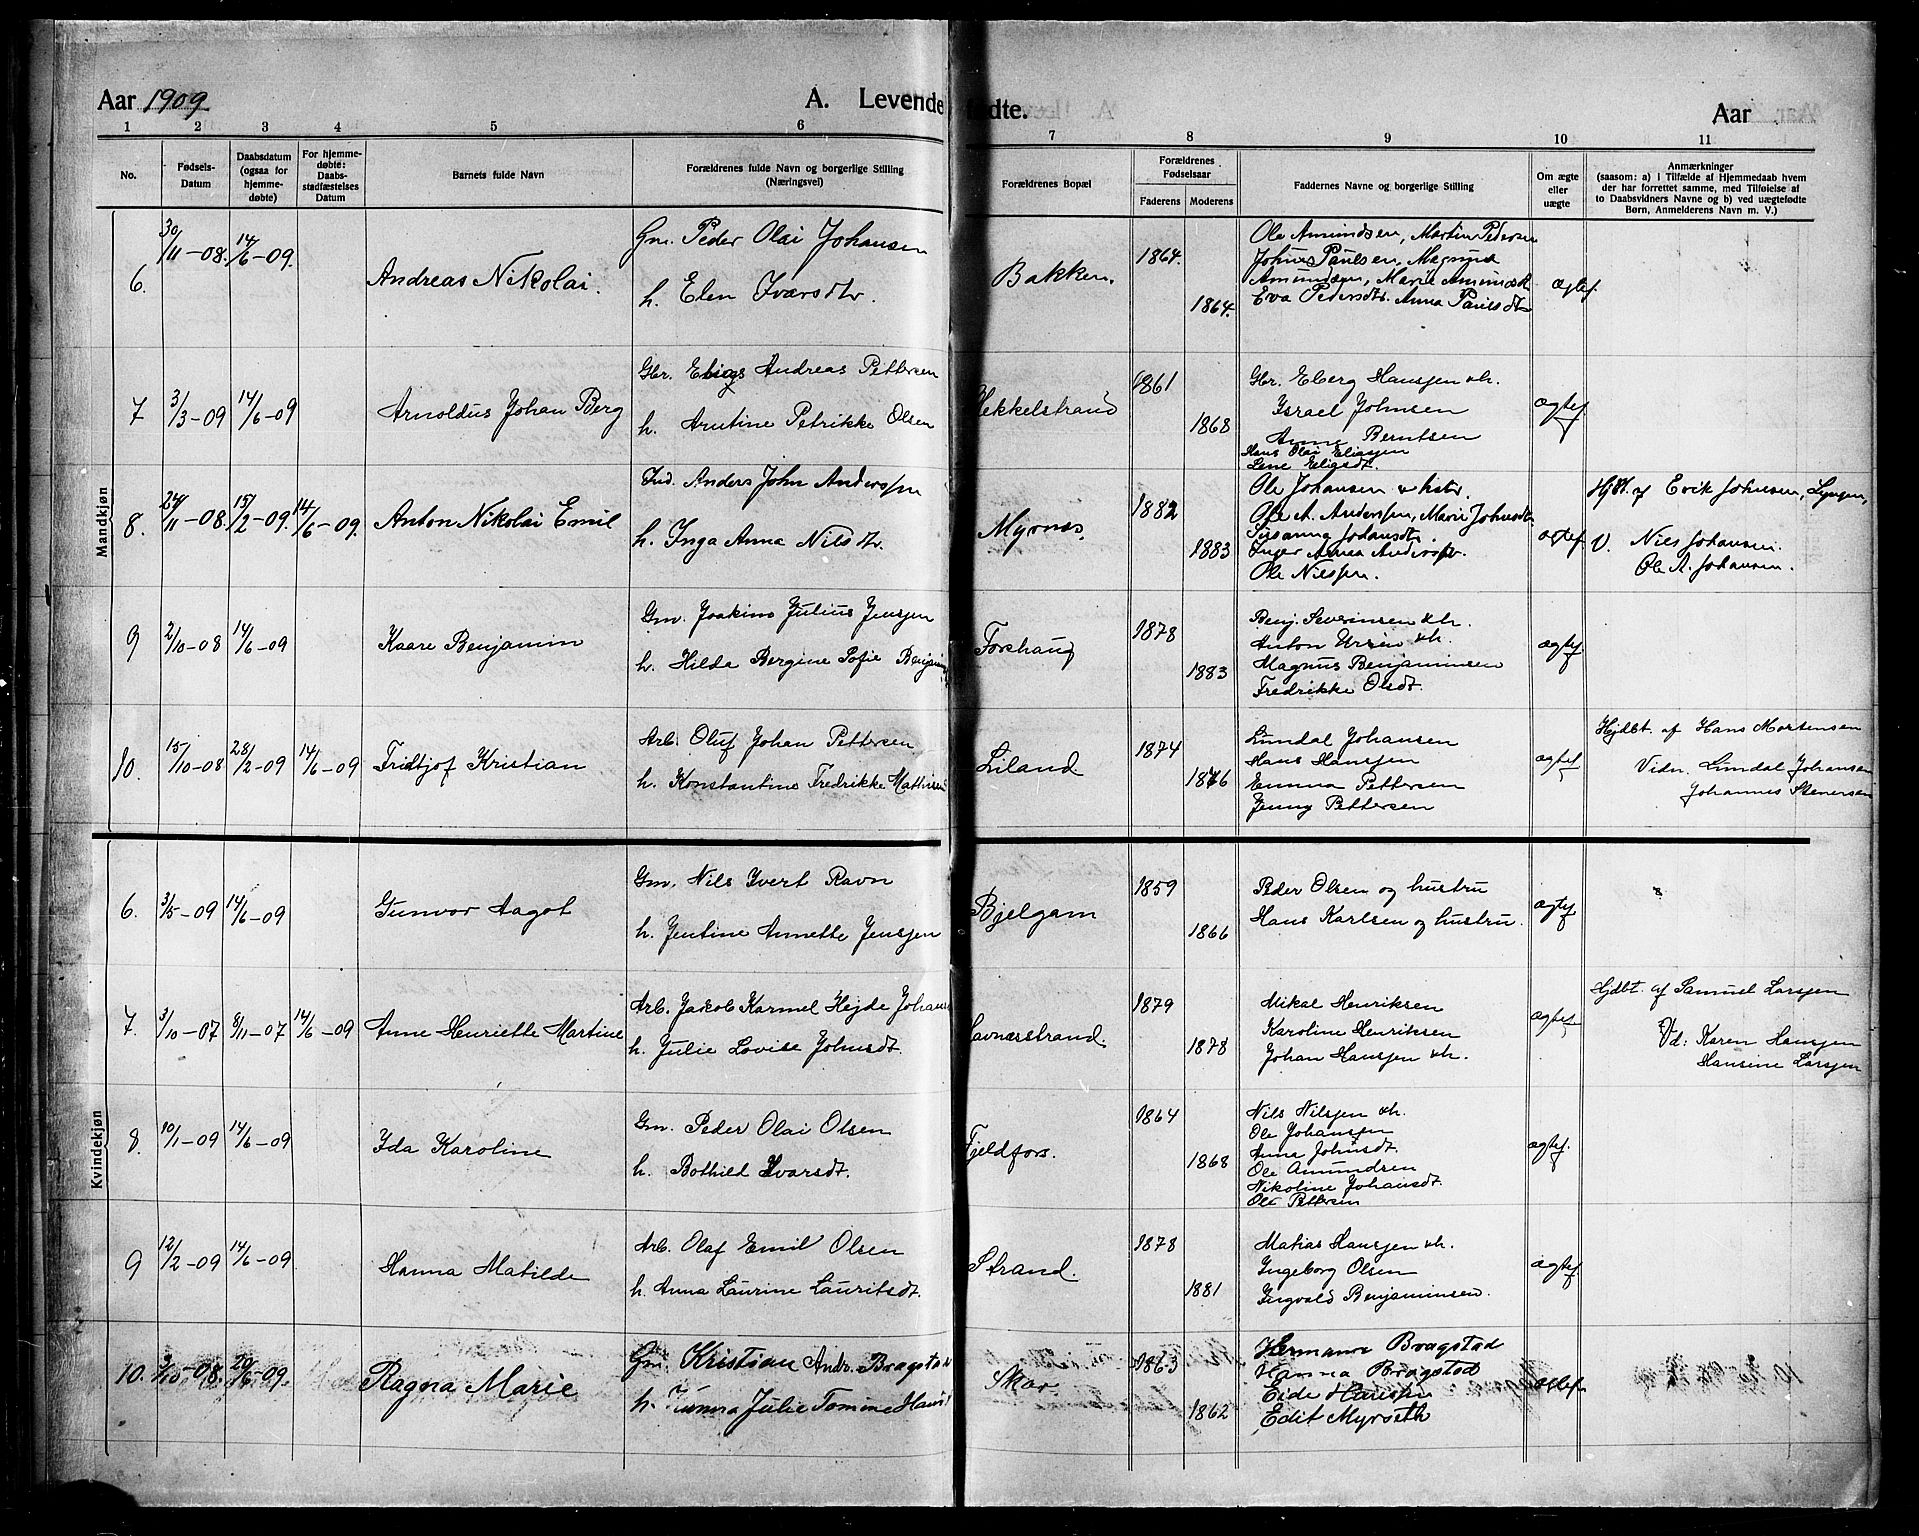 Aar 1909 A. Levende fødte. Aar
1 2 3 4 5 6 7 8 9 10 11
No. Fødsels-Datum Daabsdatum (ogsaa for hjemme-døbte) For hjemme-døbte: Daabs-stadfæstelses Datum Barnets fulde Navn Forældrenes fulde Navn og borgerlige Stilling (Næringsvei) Forældrenes Bopæl Forældrenes Fødselsaar Faderens Moderens Faddernes Navne og borgerlige Stilling Om ægte eller uægte Anmærkninger (saasom: a) i Tilfælde af Hjemmedaab hvem der har forrettet samme, med Tilføielse af to Daabsvidners Navne og b) ved uægtefødte Børn, Anmelderens Navn m. V.)
Mandkjøn
6. 30/11-08. 14/6-09. Andreas Nikolai.
Gm. Peder Olai Johansen
h. Elen Ivarsdtr.
Bakken. 1864. 1864.
Ole Amundsen, Martin Pedersen
Johns Paulsen, Magnus
Amundsen, Marie Amundsdt.
Eva Pedersdtr. Anna Paulsdtr
ægtef.
7 3/3-09 14/6-09 Arnoldus Johan Berg
Gbr. Elias Andreas Pettersen
h. Arntine Petrikke Olsen
Hekkelstrand 1861 1868
Gbr. Eberg Hansen &h.
Israel Johnsen
Anne Berntsen
Hans Olai Eliassen
Lene Eliasdt.
ægtef
8. 24/11-08. 15/2-09. 14/6-09. Anton Nikolai Emil
Ind. Anders John Anderssen
h. Inga Anna Nilsdtr.
Myrnes. 1882 1883
Ole Johansen & hstr.
Ole A. Anderssen, Marie Johnsdtr
Susanna Johansdtr.
Inger Anna Anderssdr.
Ole Nilssen.
ægtef
Hjdt. af Erik Johnsen, Lyngen,
V. Nils Johansen.
Ole A. Johansen.
9 2/10-08 14/6-09 Kaare Benjamin
Gm. Joakim Julius Jensen
h. Hilda Bergine Sofie Benjamin
Forshaug 1878 1883
Benj. Severinsen &h.
Anton Ursin &h.
Magnus Benjaminsen
Fredrikke Olsdt.
ægtef
10. 15/10-08 28/2-09 14/6-09 Fridtjof Kristian
Arb. Oluf Johan Pettersen
h. Konstantine Fredrikke Mathisen
Liland 1874 1876
Lindal Johansen
Hans Hansen
Emma Pettersen
Jenny Pettersen
ægtef
Hjdbt. af Hans Mortensen
Vidn. Lindal Johansen
Johannes Stenersen
Kvindekjøn
6. 3/5-09 14/6-09 Gunvor Aagot
Gm. Nils Ivert Ravn
h. Jentine Annette Jensen
Bjelgam 1859 1866
Peder Olsen og hustru
Hans Karlsen og hustru.
ægtef
7. 3/10-07 3/11-07 14/6-09 Anne Henriette Martine
Arb. Jakob Karmel Hejde Johans
h. Julie Lovise Johnsdt.
Havnæsstrand. 1879 1878
Mikal Henriksen
Karoline Henriksen
Johan Hansen &h.
ægtef
Hjdbt. af Samuel Larsen
Vd: Karen Hansen
Hansine Larsen
8. 10/1-09 14/6-09 Ida Karoline
Gm. Peder Olai Olsen
h. Bothild Ivarsdt.
Fjeldfors. 1864 1868
Nils Nilsen &h.
Ole Johansen
Anna Johnsdt.
Ole Amundsen
Nikoline Johansdt.
Ole Pettersen
ægtef.
9 12/2-09 14/6-09 Hanna Matilde
Arb. Olaf Emil Olsen
h. Anna Laurine Lauritsdt.
Strand. 1878 1881
Matias Hansen &h.
Ingeborg Olsen
Ingvald Benjaminsen.
ægtef
10. 3/10-08. 20/6-09. Ragna Marie
Gm. Kristian Andr. Bragstad
h. Gunna Julie Tomine Hans
Skar. 1863 1862
Hermann Bragstad
Hanna Bragstad
Eide Hanssen
Edit Myrseth
ægtef.